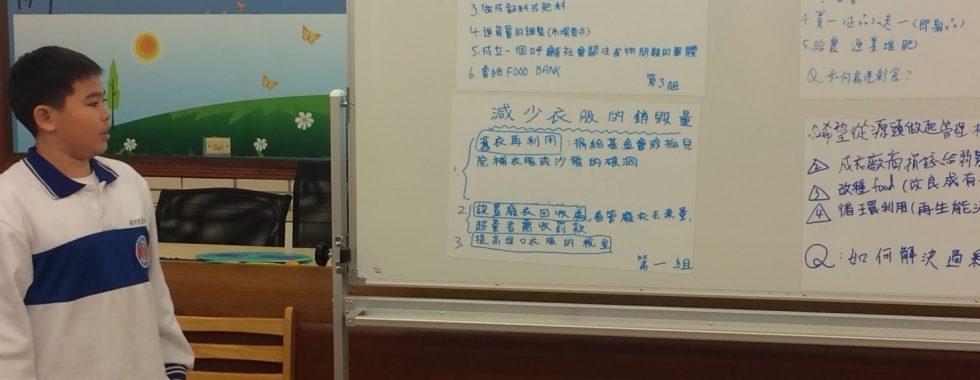 3. 做成飼料或肥料
4. 進貨量的調整(市場需求)
5. 成立一個呼籲社會關注食物問題的團體
6. 賣給 FOOD BANK
第3組
減少衣服的銷毀量
1. 舊衣再利用:捐給基金會或孤兒
院,補衣服或沙發的破洞
2. 設置廢衣回收處,看管廢衣丟棄量,
超量者需收罰款
3. 提高進口衣服的稅金
第一組
4. 買一(正品)送一(即期品)
5. 給農、漁業堆肥
Q 如何處理剩食?
希望從源頭做起管理
2 成衣廠商捐贈給弱
3 改種 food (改良成有
4 循環利用(再生能
Q:如何解決過